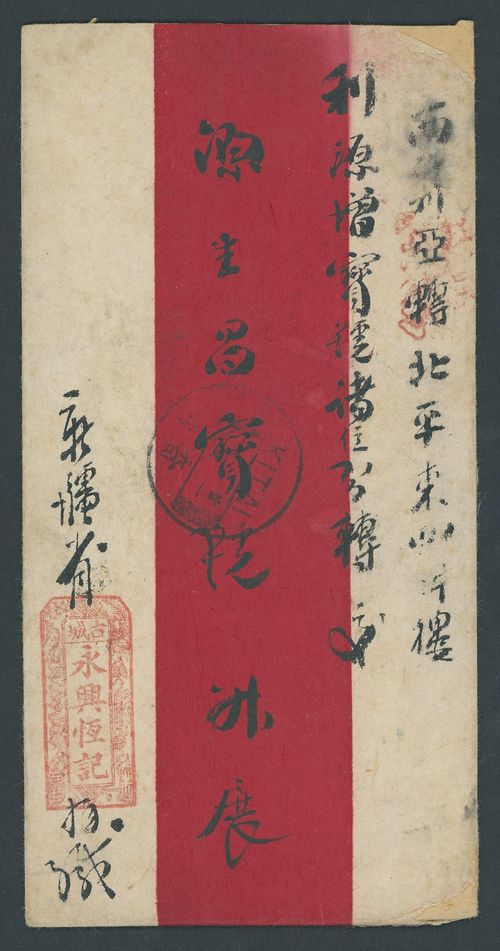 西伯利亞轉北平東四牌樓
利源增寶號諸位台轉交
源生昌寶號 升展
新疆省
古城
永興恆記
緘